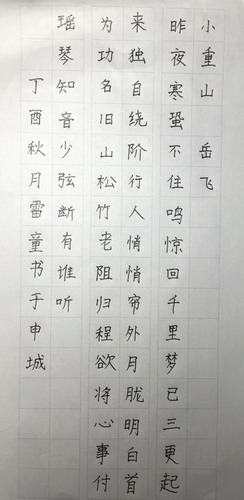 小重山 岳飞
昨夜寒蛩不住鸣惊回千里梦已三更起
来独自绕阶行人悄悄帘外月胧明白首
为功名旧山松竹老阻归程欲将心事付
瑶琴知音少弦断有谁听
丁酉秋月雷童书于申城